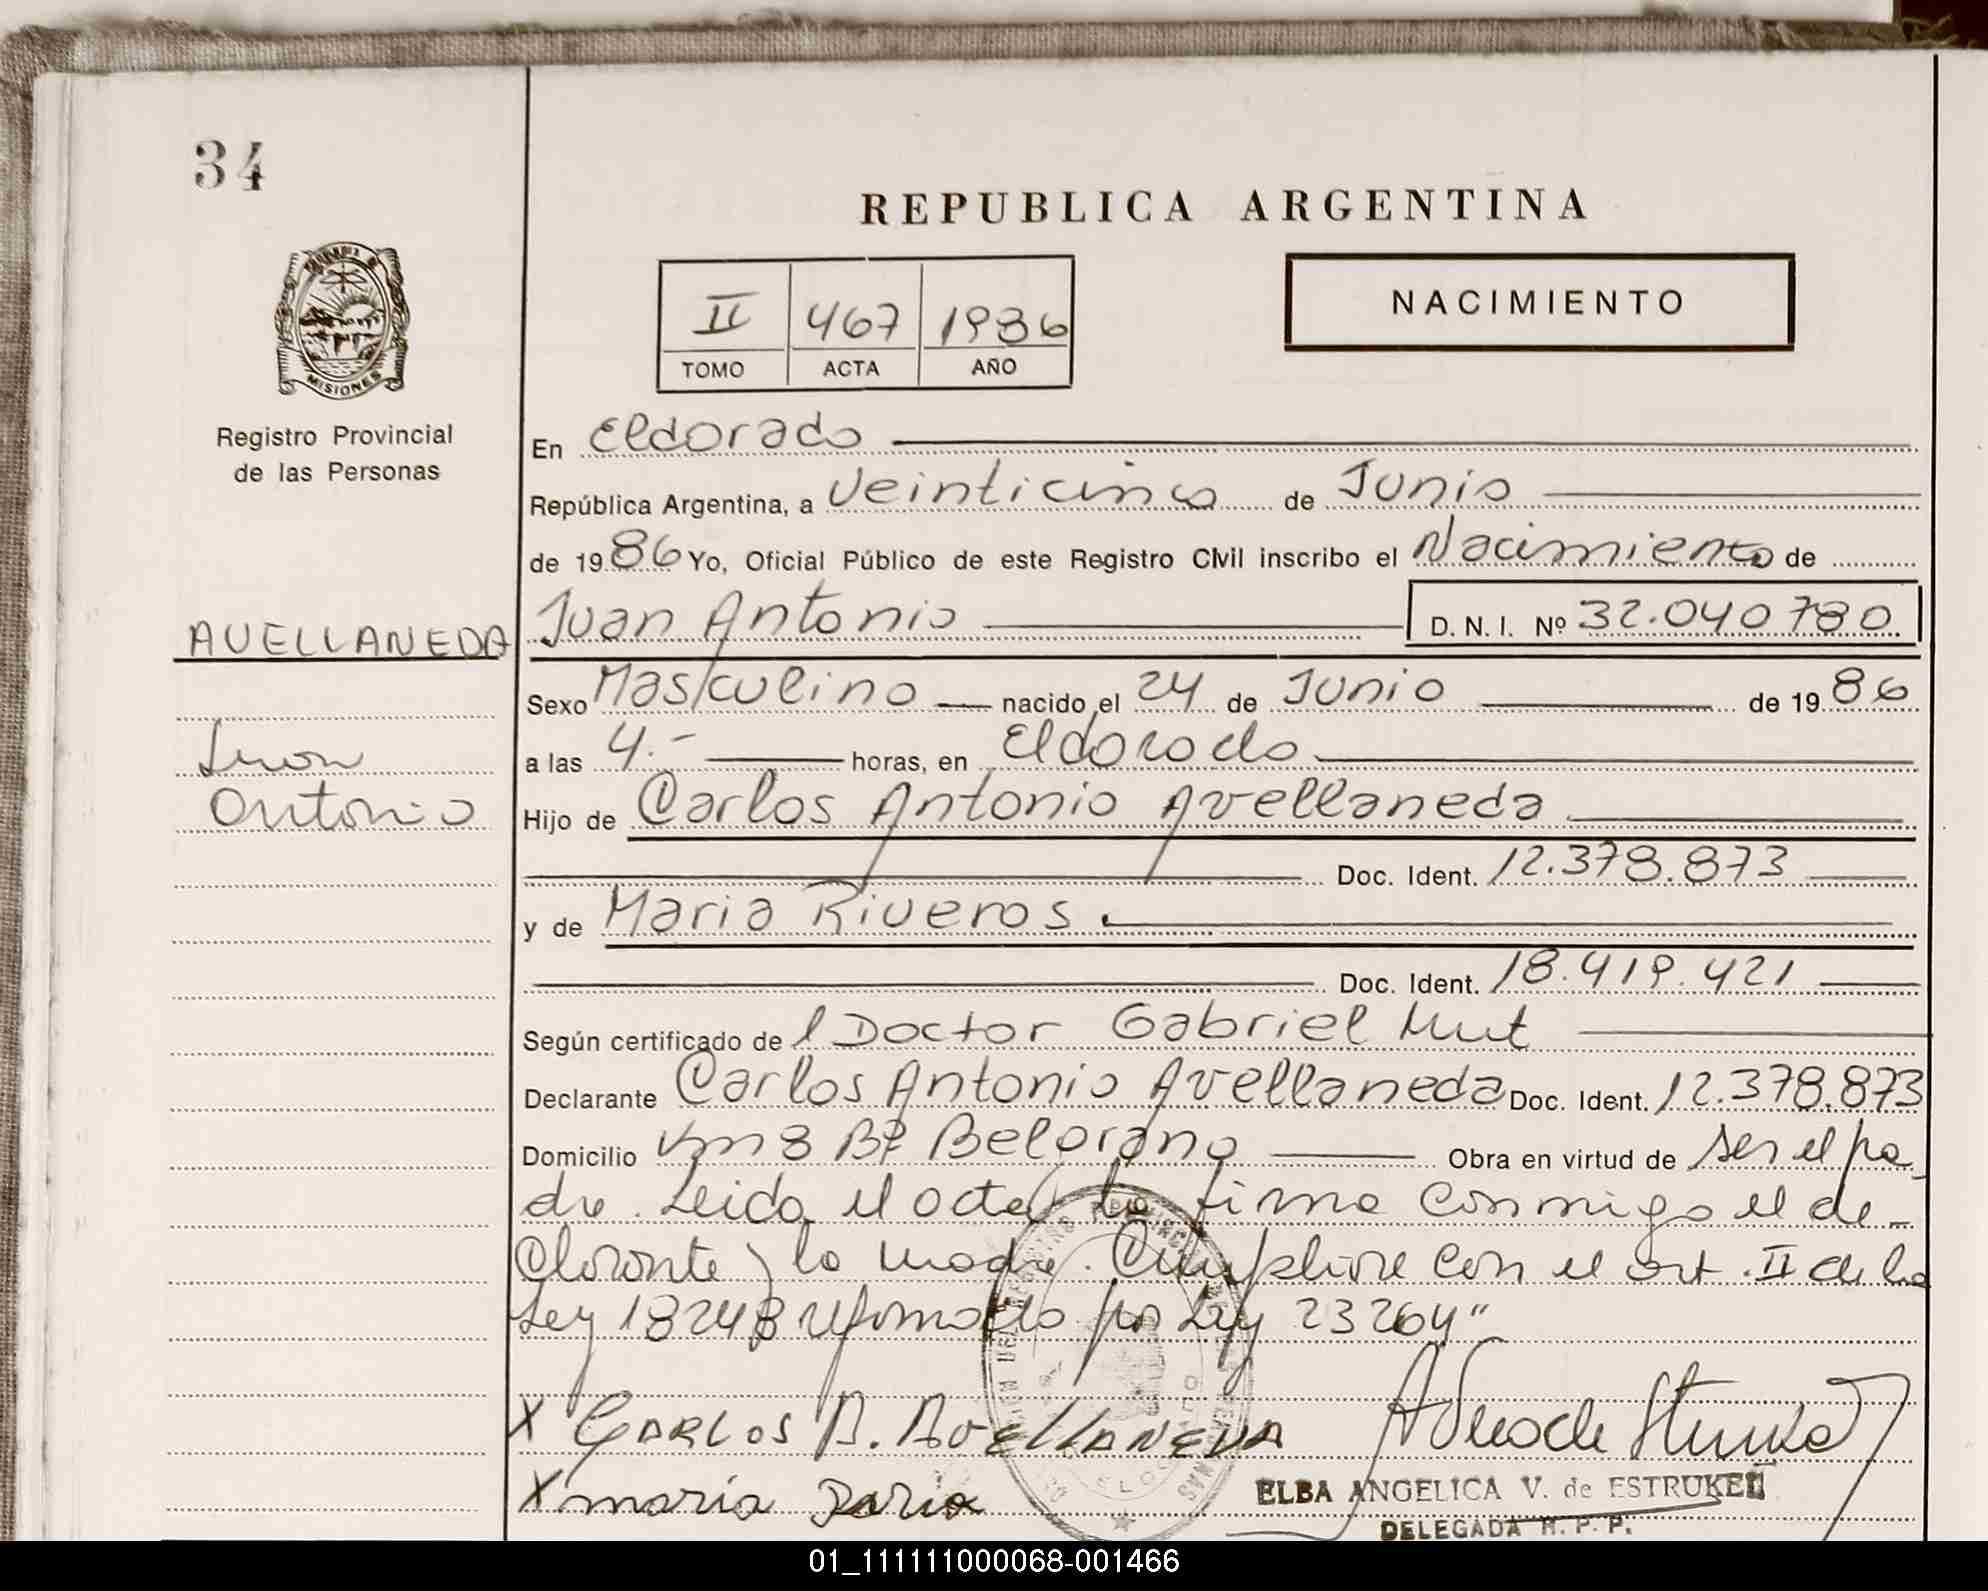 34
REPUBLICA ARGENTINA
II 467 1986
TOMO ACTA AÑO
NACIMIENTO
MISIONES
Registro Provincial
de las Personas
En Eldorado
República Argentina, a veinticinco de Junio
de 1986 Yo, Oficial Público de este Registro Civil inscribo el Nacimiento de
AVELLANEDA Juan Antonio D.N.I. Nº 32.040780
Sexo Masculino nacido el 24 de Junio de 1986
Juan
a las 4.- horas, en Eldorado
Antonio
Hijo de Carlos Antonio Avellaneda
Doc. Ident. 12.378.873
y de Maria Riveros.
Doc. Ident. 18.419.421
Según certificado del Doctor Gabriel Mut
Declarante Carlos Antonio Avellaneda Doc. Ident. 12.378.873
Domicilio Km 8 Bº Belgrano Obra en virtud de ser el pa-
dre. Leida el acta la firma conmigo el de-
clarante y la madre. Cumplire con el art. II de la
Ley 18248 reformado por Ley 23264"
X CARLOS A. AVELLANEDA
X maria
ELBA ANGELICA V. de ESTRUKEL
DELEGADA R. P. P.
01_111111000068-001466